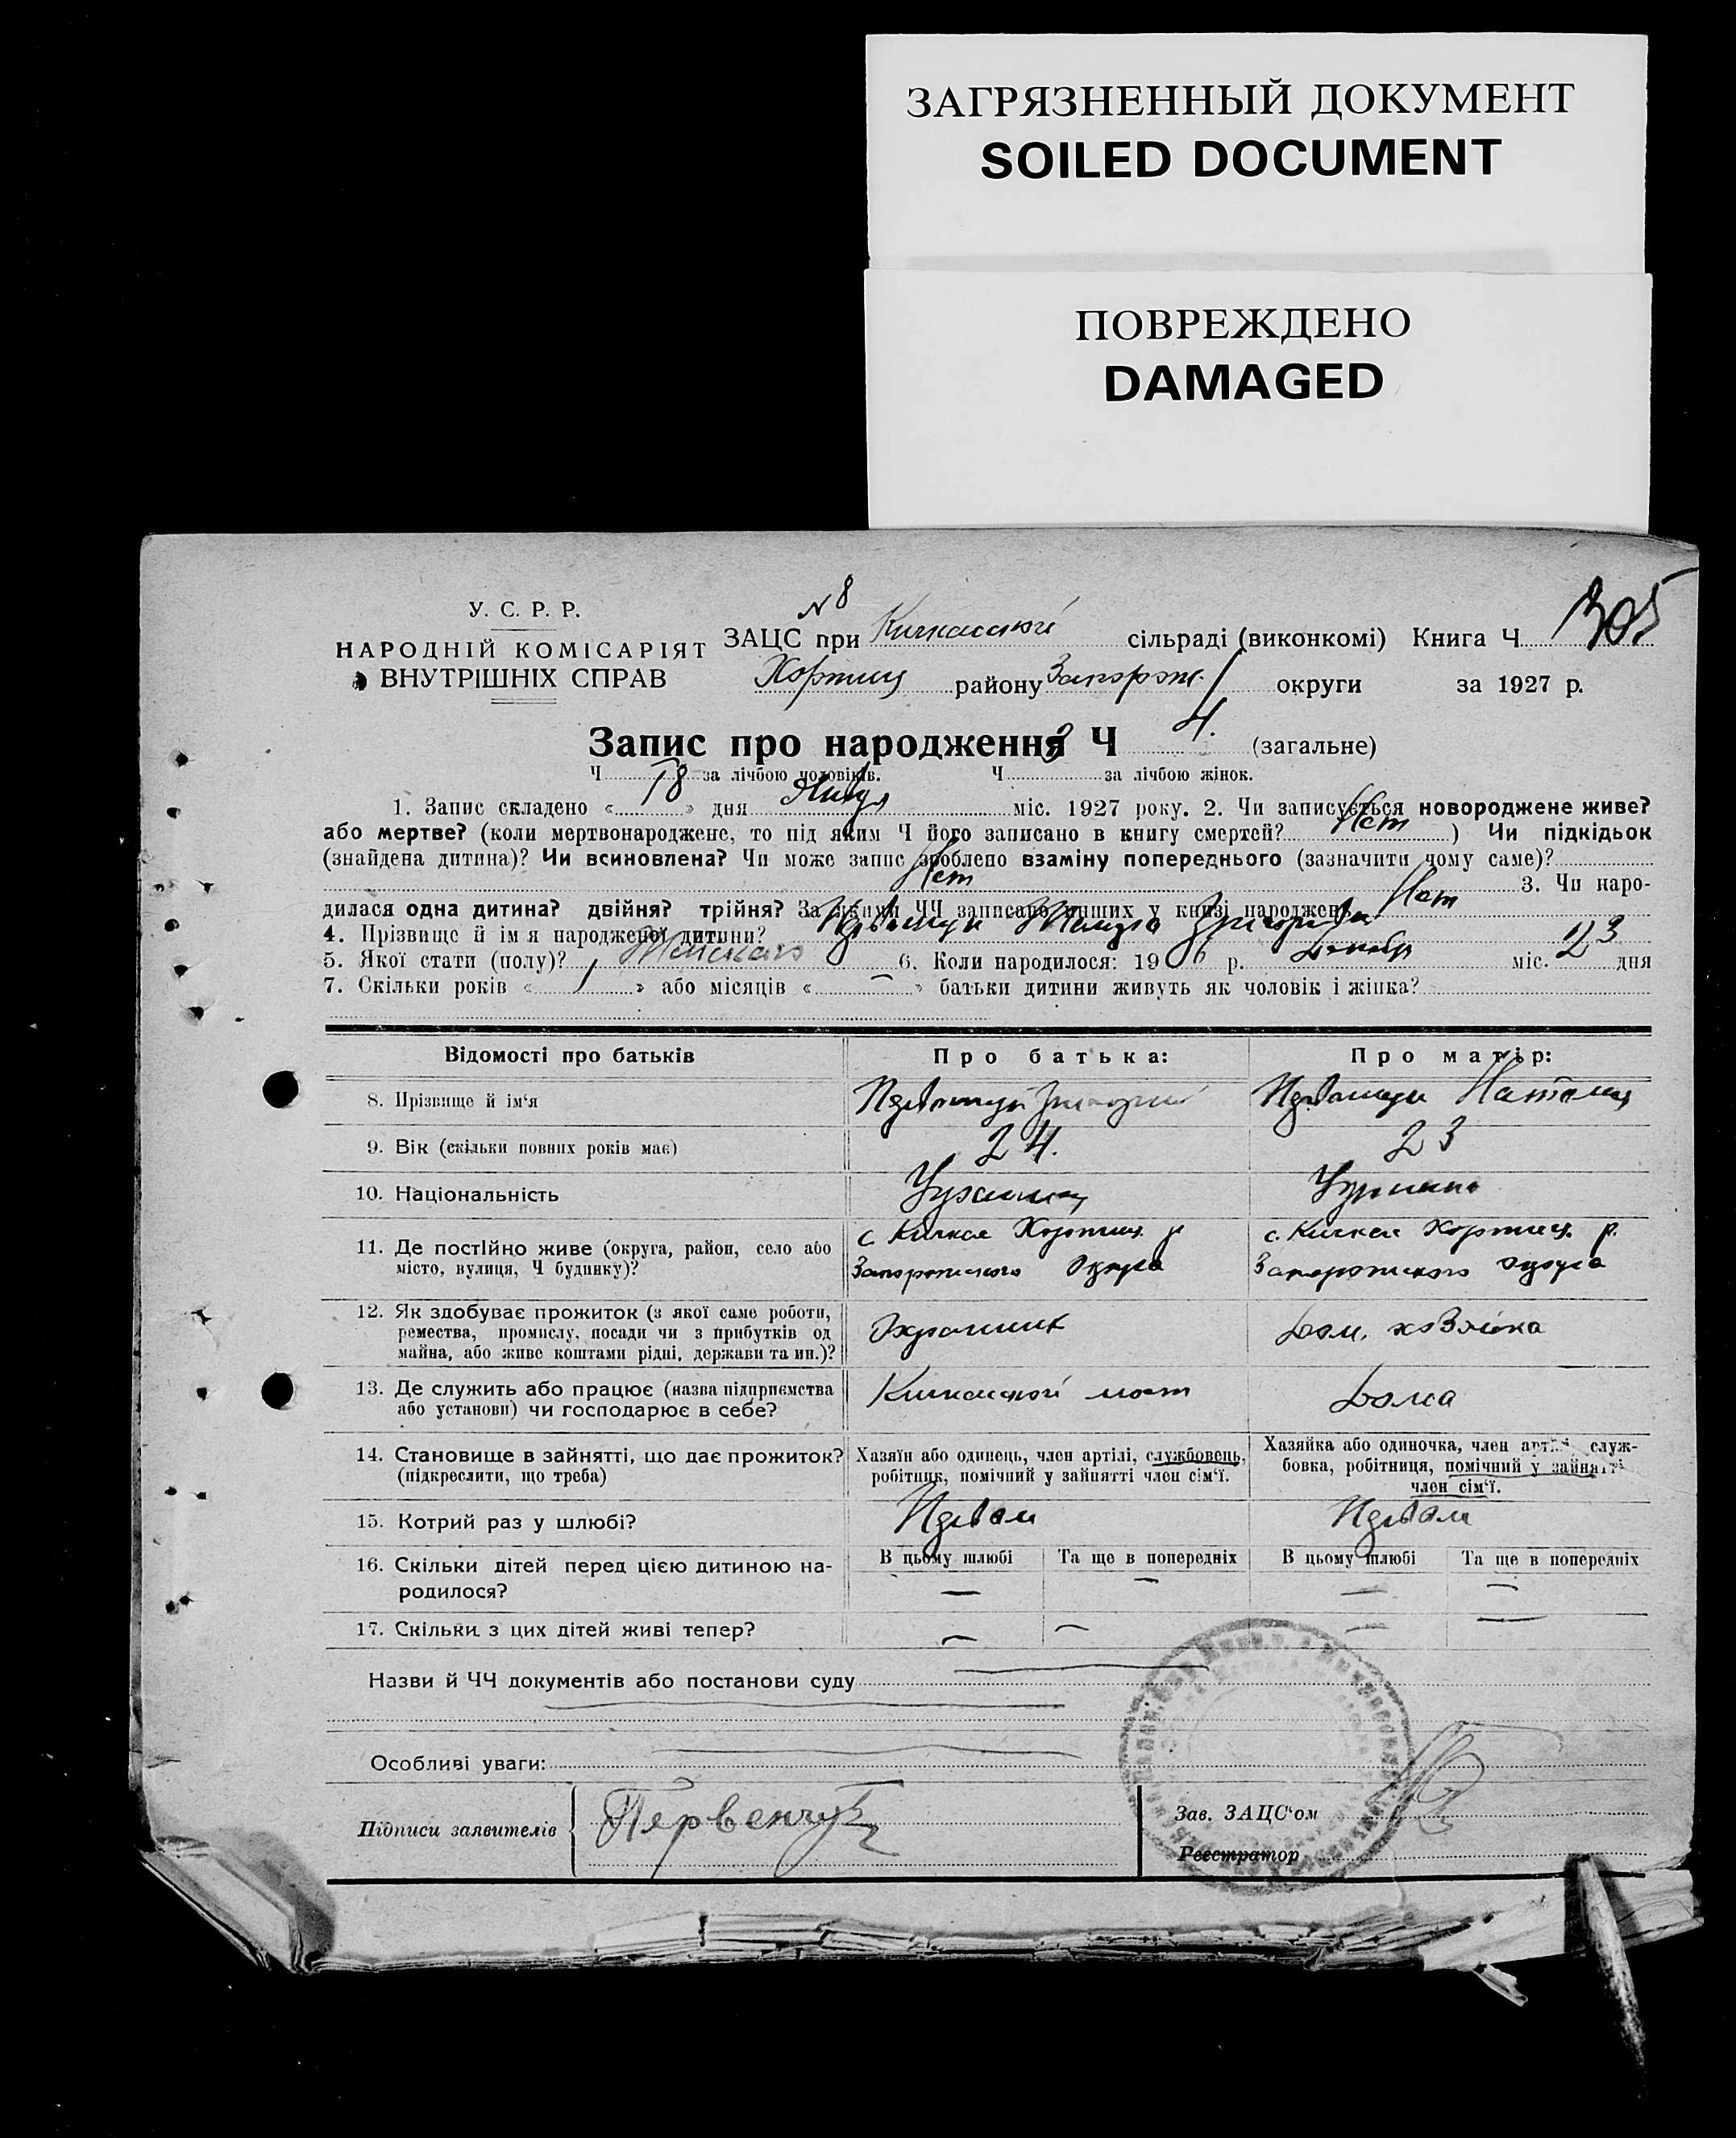 ЗАГРЯЗНЕННЫЙ ДОКУМЕНТ
SOILED DOCUMENT
ПОВРЕЖДЕНО
DAMAGED
У. С. Р. Р.
НАРОДНІЙ КОМІСАРІЯТ
ВНУТРІШНІХ СПРАВ
N 8
ЗАЦС при Кичкасской сільраді (виконкомі) Книга Ч 305
Хортиц району Запорож. округи за 1927 р.
Запис про народження Ч 4. (загальне)
Ч за лічбою чоловіків. Ч за лічбою жінок.
1. Запис складено « 18 » дня Янв міс. 1927 року. 2. Чи записується новороджене живе?
або мертве? (коли мертвонароджене, то під яким Ч його записано в книгу смертей? Нет ) Чи підкідьок
(знайдена дитина)? Чи всиновлена? Чи може запис зроблено взаміну попереднього (зазначити чому саме)?
Нет 3. Чи наро-
дилася одна дитина? двійня? трійня? За якими ЧЧ записано инших у книзі народжень Нет
4. Прізвище й ім'я народженої дитини?
5. Якої статі (полу)? Женского 6. Коли народилося: 19 6 р. Декабр міс. 23 дня
7. Скільки років « 1 » або місяців « — » батьки дитини живуть як чоловік і жінка?
Відомості про батьків Про батька: Про матір:
8. Прізвище й ім'я
9. Вік (скільки повних років має) 24. 23
10. Національність
11. Де постійно живе (округа, район, село або с. Кичкас Хортиц. р. с. Кичкас Хортиц. р.
місто, вулиця, Ч будинку)? Запорожского Округа Запорожского Округа
12. Як здобуває прожиток (з якої саме роботи,
ремества, промислу, посади чи з прибутків од Охранник Дом. хозяйка
майна, або живе коштами рідні, держави та ин.)?
13. Де служить або працює (назва підприємства Кичкасской мост Дома
або установи) чи господарює в себе?
14. Становище в зайнятті, що дає прожиток? Хазяїн або одинець, член артілі, службовець, Хазяйка або одиночка, член артілі, служ-
(підкреслити, що треба) робітник, помічний у зайнятті член сім'ї. бовка, робітниця, помічний у зайнятті
член сім'ї.
15. Котрий раз у шлюбі?
16. Скільки дітей перед цією дитиною на- В цьому шлюбі Та ще в попередніх В цьому шлюбі Та ще в попередніх
родилося? — — — —
17. Скільки з цих дітей живі тепер? — — — —
Назви й ЧЧ документів або постанови суду
Особливі уваги:
Підписи заявителів Первенчук Зав. ЗАЦС'ом
Реєстратор